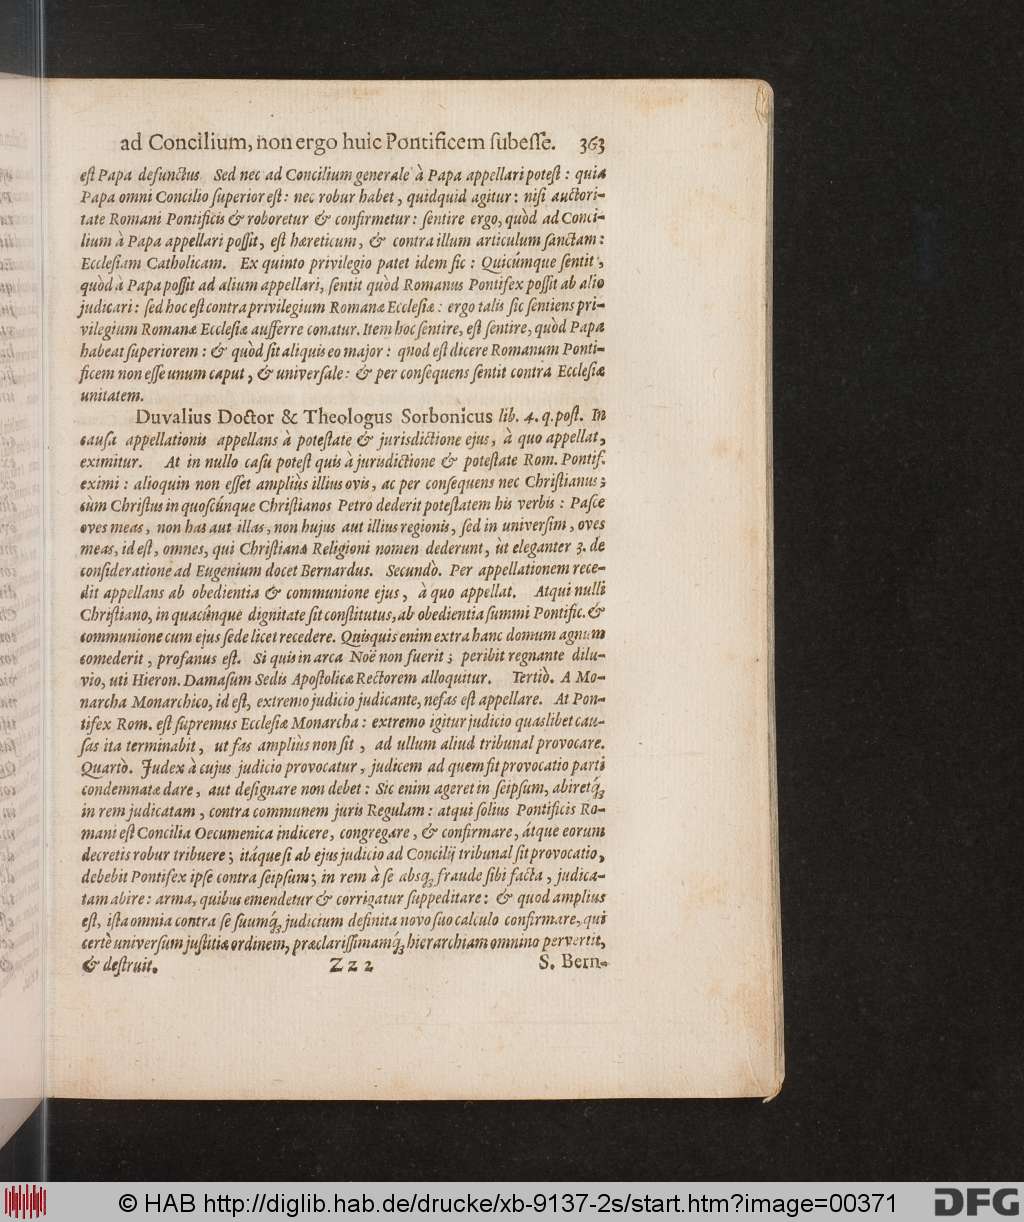 ad Concilium, non ergo huic Pontificem ſubeſſe. 363
eſt Papa defunctus Sed nec ad Concilium generale à Papa appellari poteſt : quia
Papa omni Concilio ſuperior eſt : nec robur habet, quidquid agitur : niſi auctori-
tate Romani Pontificis & roboretur & confirmetur : ſentire ergo, quòd ad Conci-
lium à Papa appellari poſſit, eſt hæreticum, & contra illum articulum ſanctam :
Eccleſiam Catholicam. Ex quinto privilegio patet idem ſic : Quicúmque ſentit,
quòd à Papa poſſit ad alium appellari, ſentit quòd Romanus Pontifex poſſit ab alio
judicari : ſed hoc eſt contra privilegium Romanæ Eccleſiæ : ergo talis ſic ſentiens pri-
vilegium Romanæ Eccleſiæ aufferre conatur. Item hoc ſentire, eſt ſentire, quòd Papa
habeat ſuperiorem : & quòd ſit aliquis eo major : quod eſt dicere Romanum Ponti-
ficem non eſſe unum caput, & univerſale : & per conſequens ſentit contra Eccleſiæ
unitatem.
Duvalius Doctor & Theologus Sorbonicus lib. 4. q. poſt. In
cauſa appellationis appellans à poteſtate & jurisdictione ejus, à quo appellat,
eximitur. At in nullo caſu poteſt quis à jurisdictione & poteſtate Rom. Pontif.
eximi : alioquin non eſſet ampliùs illius ovis, ac per conſequens nec Chriſtianus ;
cùm Chriſtus in quoſcúnque Chriſtianos Petro dederit poteſtatem his verbis : Paſce
oves meas, non has aut illas, non hujus aut illius regionis, ſed in univerſim, oves
meas, id eſt, omnes, qui Chriſtiana Religioni nomen dederunt, ùt eleganter 3. de
conſideratione ad Eugenium docet Bernardus. Secundò. Per appellationem rece-
dit appellans ab obedientia & communione ejus, à quo appellat. Atqui nulli
Chriſtiano, in quacúnque dignitate ſit conſtitutus, ab obedientia ſummi Pontific. &
communione cum ejus ſede licet recedere. Quisquis enim extra hanc domum agnum
comederit, profanus eſt. Si quis in arca Noë non fuerit ; peribit regnante dilu-
vio, uti Hieron. Damaſum Sedis Apoſtolicæ Rectorem alloquitur. Tertiò. A Mo-
narcha Monarchico, id eſt, extremo judicio judicante, nefas eſt appellare. At Pon-
tifex Rom. eſt ſupremus Eccleſiæ Monarcha : extremo igitur judicio quaslibet cau-
ſas ita terminabit, ut fas ampliùs non ſit, ad ullum aliud tribunal provocare.
Quartò. Judex à cujus judicio provocatur, judicem ad quem ſit provocatio parti
condemnatæ dare, aut deſignare non debet : Sic enim ageret in ſeipſum, abiretq́;
in rem judicatam, contra communem juris Regulam : atqui ſolius Pontificis Ro-
mani eſt Concilia Oecumenica indicere, congregare, & confirmare, átque eorum
decretis robur tribuere ; itáque ſi ab ejus judicio ad Concilij tribunal ſit provocatio,
debebit Pontifex ipſe contra ſeipſum ; in rem à ſe absq; fraude ſibi facta, judica-
tam abire : arma, quibus emendetur & corrigatur ſuppeditare : & quod amplius
eſt, iſta omnia contra ſe ſuumq́; judicium definita novo ſuo calculo confirmare, qui
certè univerſum juſtitiæ ordinem, præclariſſimamq́; hierarchiam omnino pervertit,
& deſtruit. Z z 2 S. Bern-
© HAB http://diglib.hab.de/drucke/xb-9137-2s/start.htm?image=00371 DFG